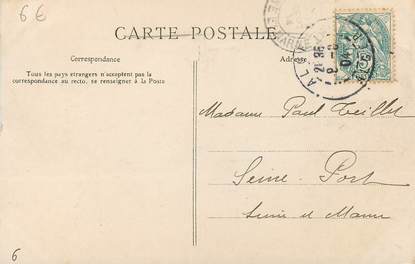 66
CARTE POSTALE
Correspondance
Adresse
Tous les pays étrangers n'acceptent pas la
correspondance au recto, se renseigner à la Poste
ALGER
04
Madame Paul Teillet
Seine-Port
Seine et Marne
6